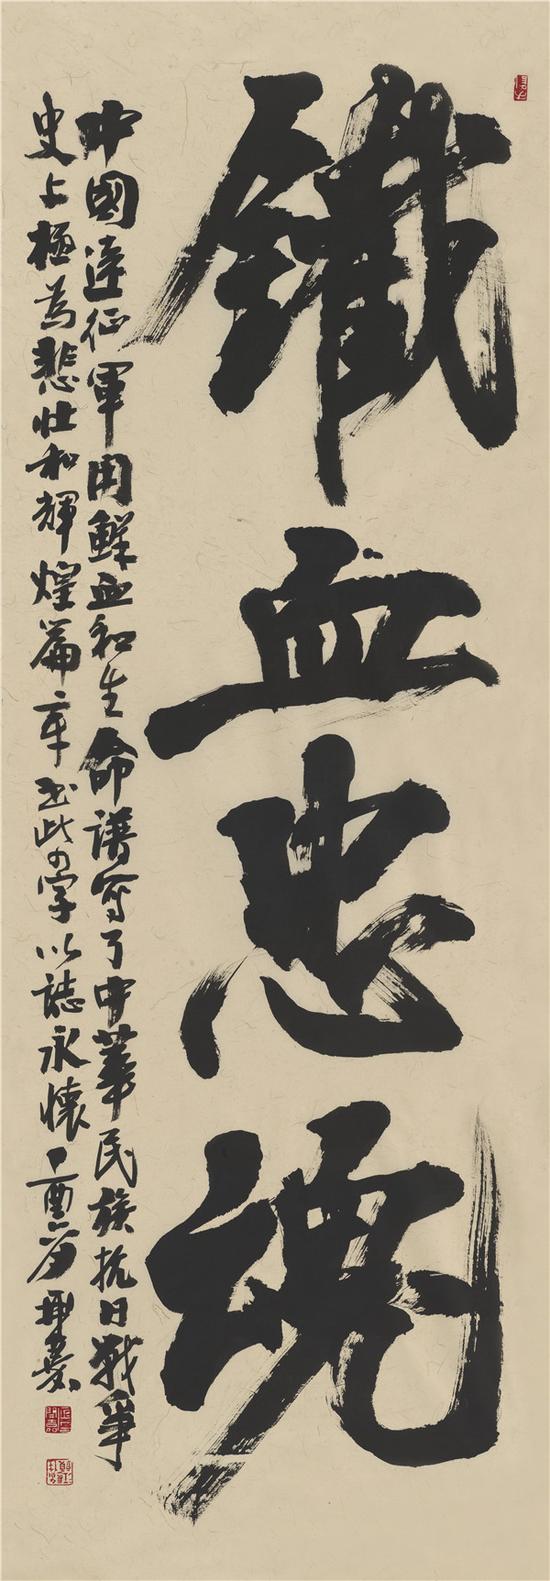 鐵血忠魂
中國遠征軍用鮮血和生命譜寫了中華民族抗日戰爭
史上極為悲壯和輝煌篇章書此四字以誌永懷丁酉